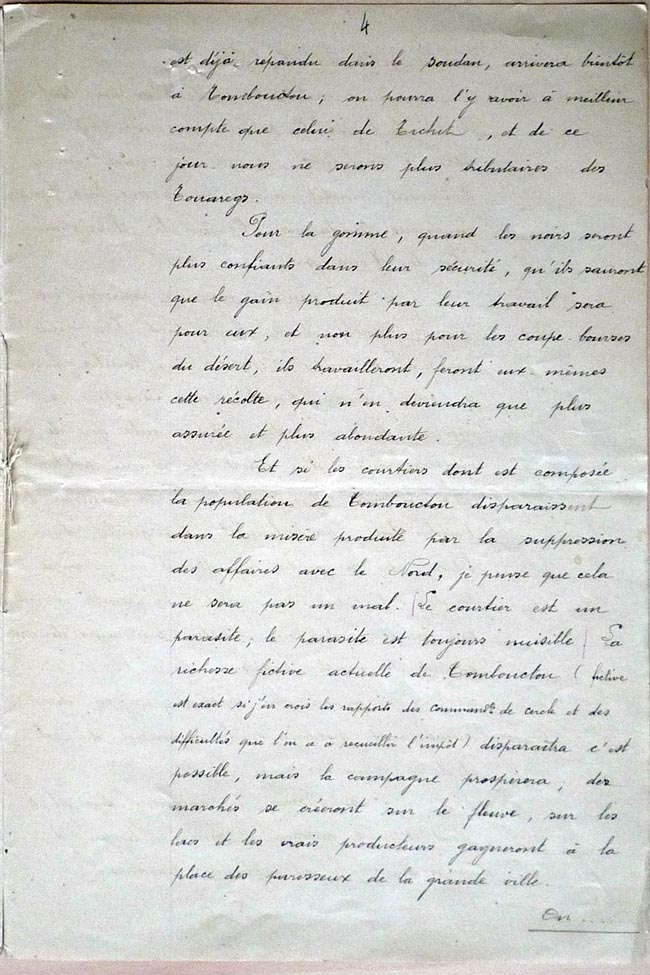 4
est déjà répandu dans le soudan, arrivera bientôt
à Tombouctou; on pourra l'y avoir à meilleur
compte que celui de Tichit, et de ce
jour nous ne serons plus tributaires des
Touaregs.
Pour la gomme, quand les noirs seront
plus confiants dans leur sécurité, qu'ils sauront
que le gain produit par leur travail sera
pour eux, et non plus pour les coupe-bourses
du désert, ils travailleront, feront eux-mêmes
cette récolte, qui n'en deviendra que plus
assurée et plus abondante.
Et si les courtiers dont est composée
la population de Tombouctou disparaissent
dans la misère produite par la suppression
des affaires avec le Nord, je pense que cela
ne sera pas un mal. [Le courtier est un
parasite; le parasite est toujours nuisible] La
richesse fictive actuelle de Tombouctou (fictive
est exact si j'en crois les rapports des commandts de cercle et des
difficultés que l'on a à recueillir l'impôt) disparaîtra c'est
possible, mais la campagne prospèrera, des
marchés se créeront sur le fleuve, sur les
lacs et les vrais producteurs gagneront à la
place des paresseux de la grande ville.
On....